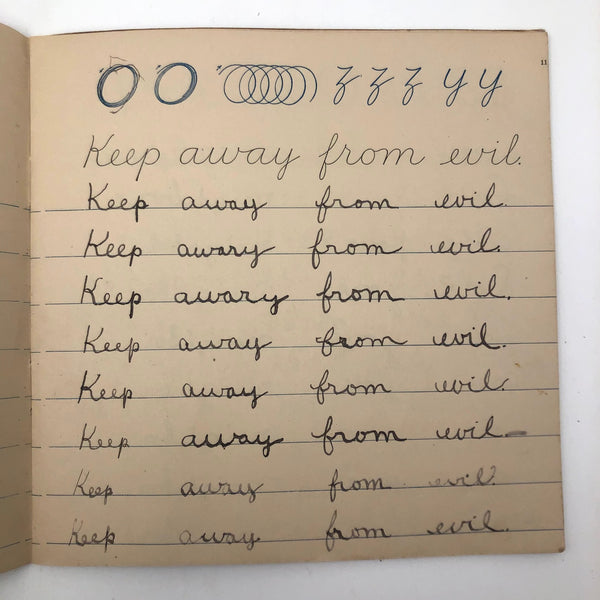 11
O O z z z y y
Keep away from evil.
Keep away from evil.
Keep awary from evil.
Keep awary from evil.
Keep away from evil.
Keep away from evil.
Keep away from evil.
Keep away from evil.
Keep away from evil.